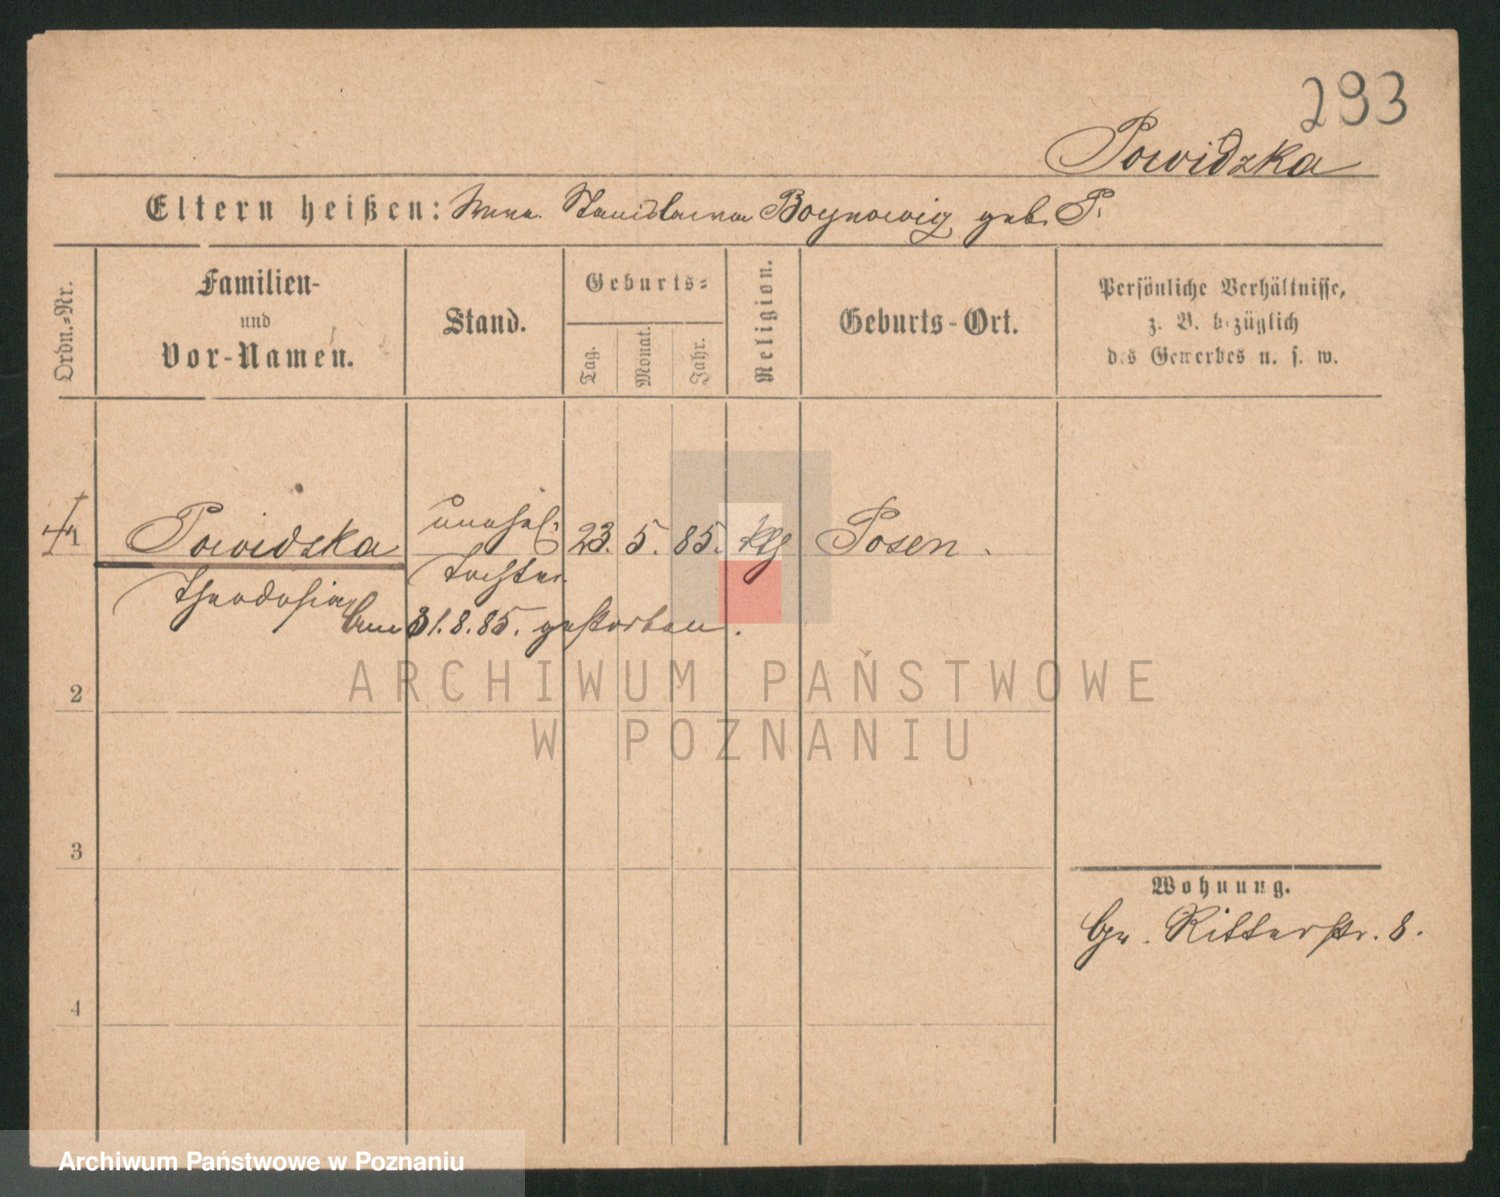 293
Powidzka
Eltern heißen: Stanislawa geb. P.
Ordn.-Nr.
Familien-
und
Vor-Namen.
Stand.
Geburts-
Tag.
Monat.
Jahr.
Religion.
Geburts-Ort.
Persönliche Verhältnisse,
z. B. bezüglich
des Gewerbes u. s. w.
1 Powidzka unehel. 23. 5. 85. kth Posen.
Theodosia Tochter
am 31.8.85. gestorben.
ARCHIWUM PAŃSTWOWE
W POZNANIU
2
3
Wohnung.
Gr. Ritterstr. 8.
4
Archiwum Państwowe w Poznaniu